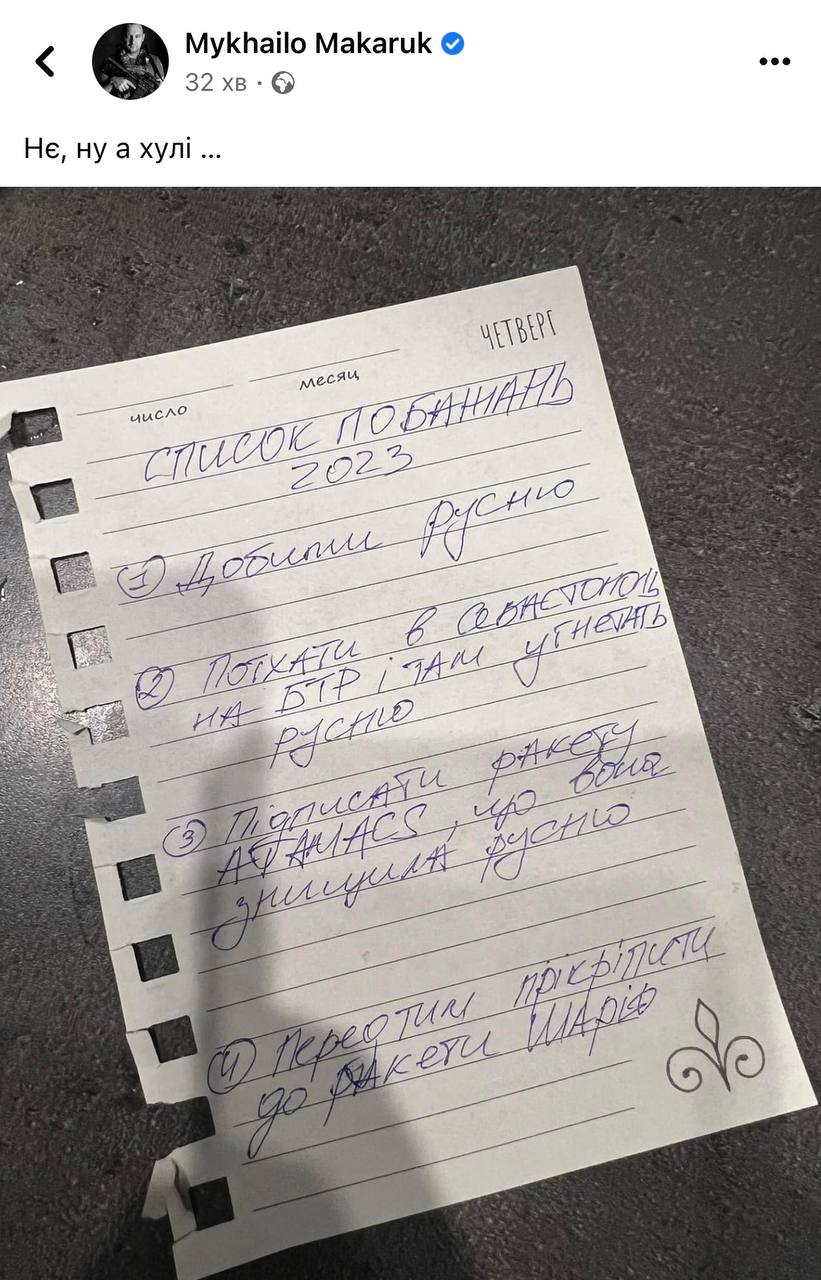 Mykhailo Makaruk
32 хв
Нє, ну а хулі ...
ЧЕТВЕРГ
число
месяц
СПИСОК ПОБАЖАНЬ
2023
1 Добити Русню
2 ПОЇХАТИ в СЕВАСТОПОЛЬ
НА БТР і ТАМ УГНЕТАТЬ
РУСНЮ
3 Підписати ракету
ATAMACS, що вона
знищила русню
4 Перед тим прікріпити
до ракети ШАРІЯ